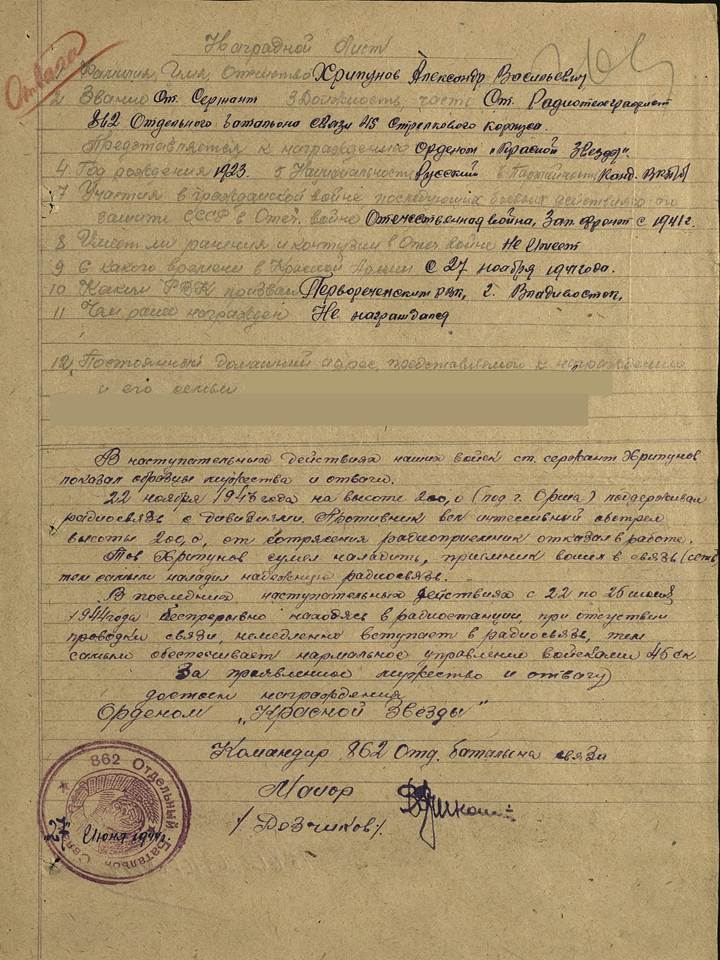 Наградной лист
Отвага
1 Фамилия, Имя, Отчество Хрипунов Александр Васильевич
2 Звание Ст. Сержант 3 Должность, часть Ст. Радиотелеграфист
862 Отдельного батальона связи 45 Стрелкового корпуса.
Представляется к награждению Орденом "Красной Звезды".
4 Год рождения 1923. 5 Национальность Русский 6 Партийность Канд. ВКП(б)
7 Участия в гражданской войне последующих боевых действиях по
защите СССР в Отеч. войне Отечественная война, Зап. Фронт с 1941 г.
8 Имеет ли ранения и контузии в Отеч войне Не имеет
9 С какого времени в Красной Армии С 27 ноября 1941 года.
10 Каким РВК призван Первореченским РВК, г. Владивосток.
11 Чем ранее награжден Не награждался
12, Постоянный домашний адрес, представляемого к награждению
и его семьи
В наступательных действиях наших войск ст. сержант Хрипунов
показал образцы мужества и отваги.
22 ноября 1943 года на высоте 200,0 (под г. Орша) поддерживал
радиосвязь с дивизиями. Противник вел интенсивный обстрел
высоты 200,0, от сотрясения радиоприемник отказал в работе.
Тов Хрипунов сумел наладить, приемник вошел в связь (сеть
тем самым наладил надежную радиосвязь.
В последних наступательных действиях с 22 по 25 июня
1944 года беспрерывно находясь в радиостанции, при отсутствии
проводной связи, немедленно вступает в радиосвязь, тем
самым обеспечивает нормальное управление войсками 45 ск
За проявленное мужество и отвагу
достоин награждения
Орденом "Красной Звезды"
Командир 862 Отд. батальона связи
Майор
/ Дозчиков /.
862 Отдельный Батальон Связи
Июня 1944 г.